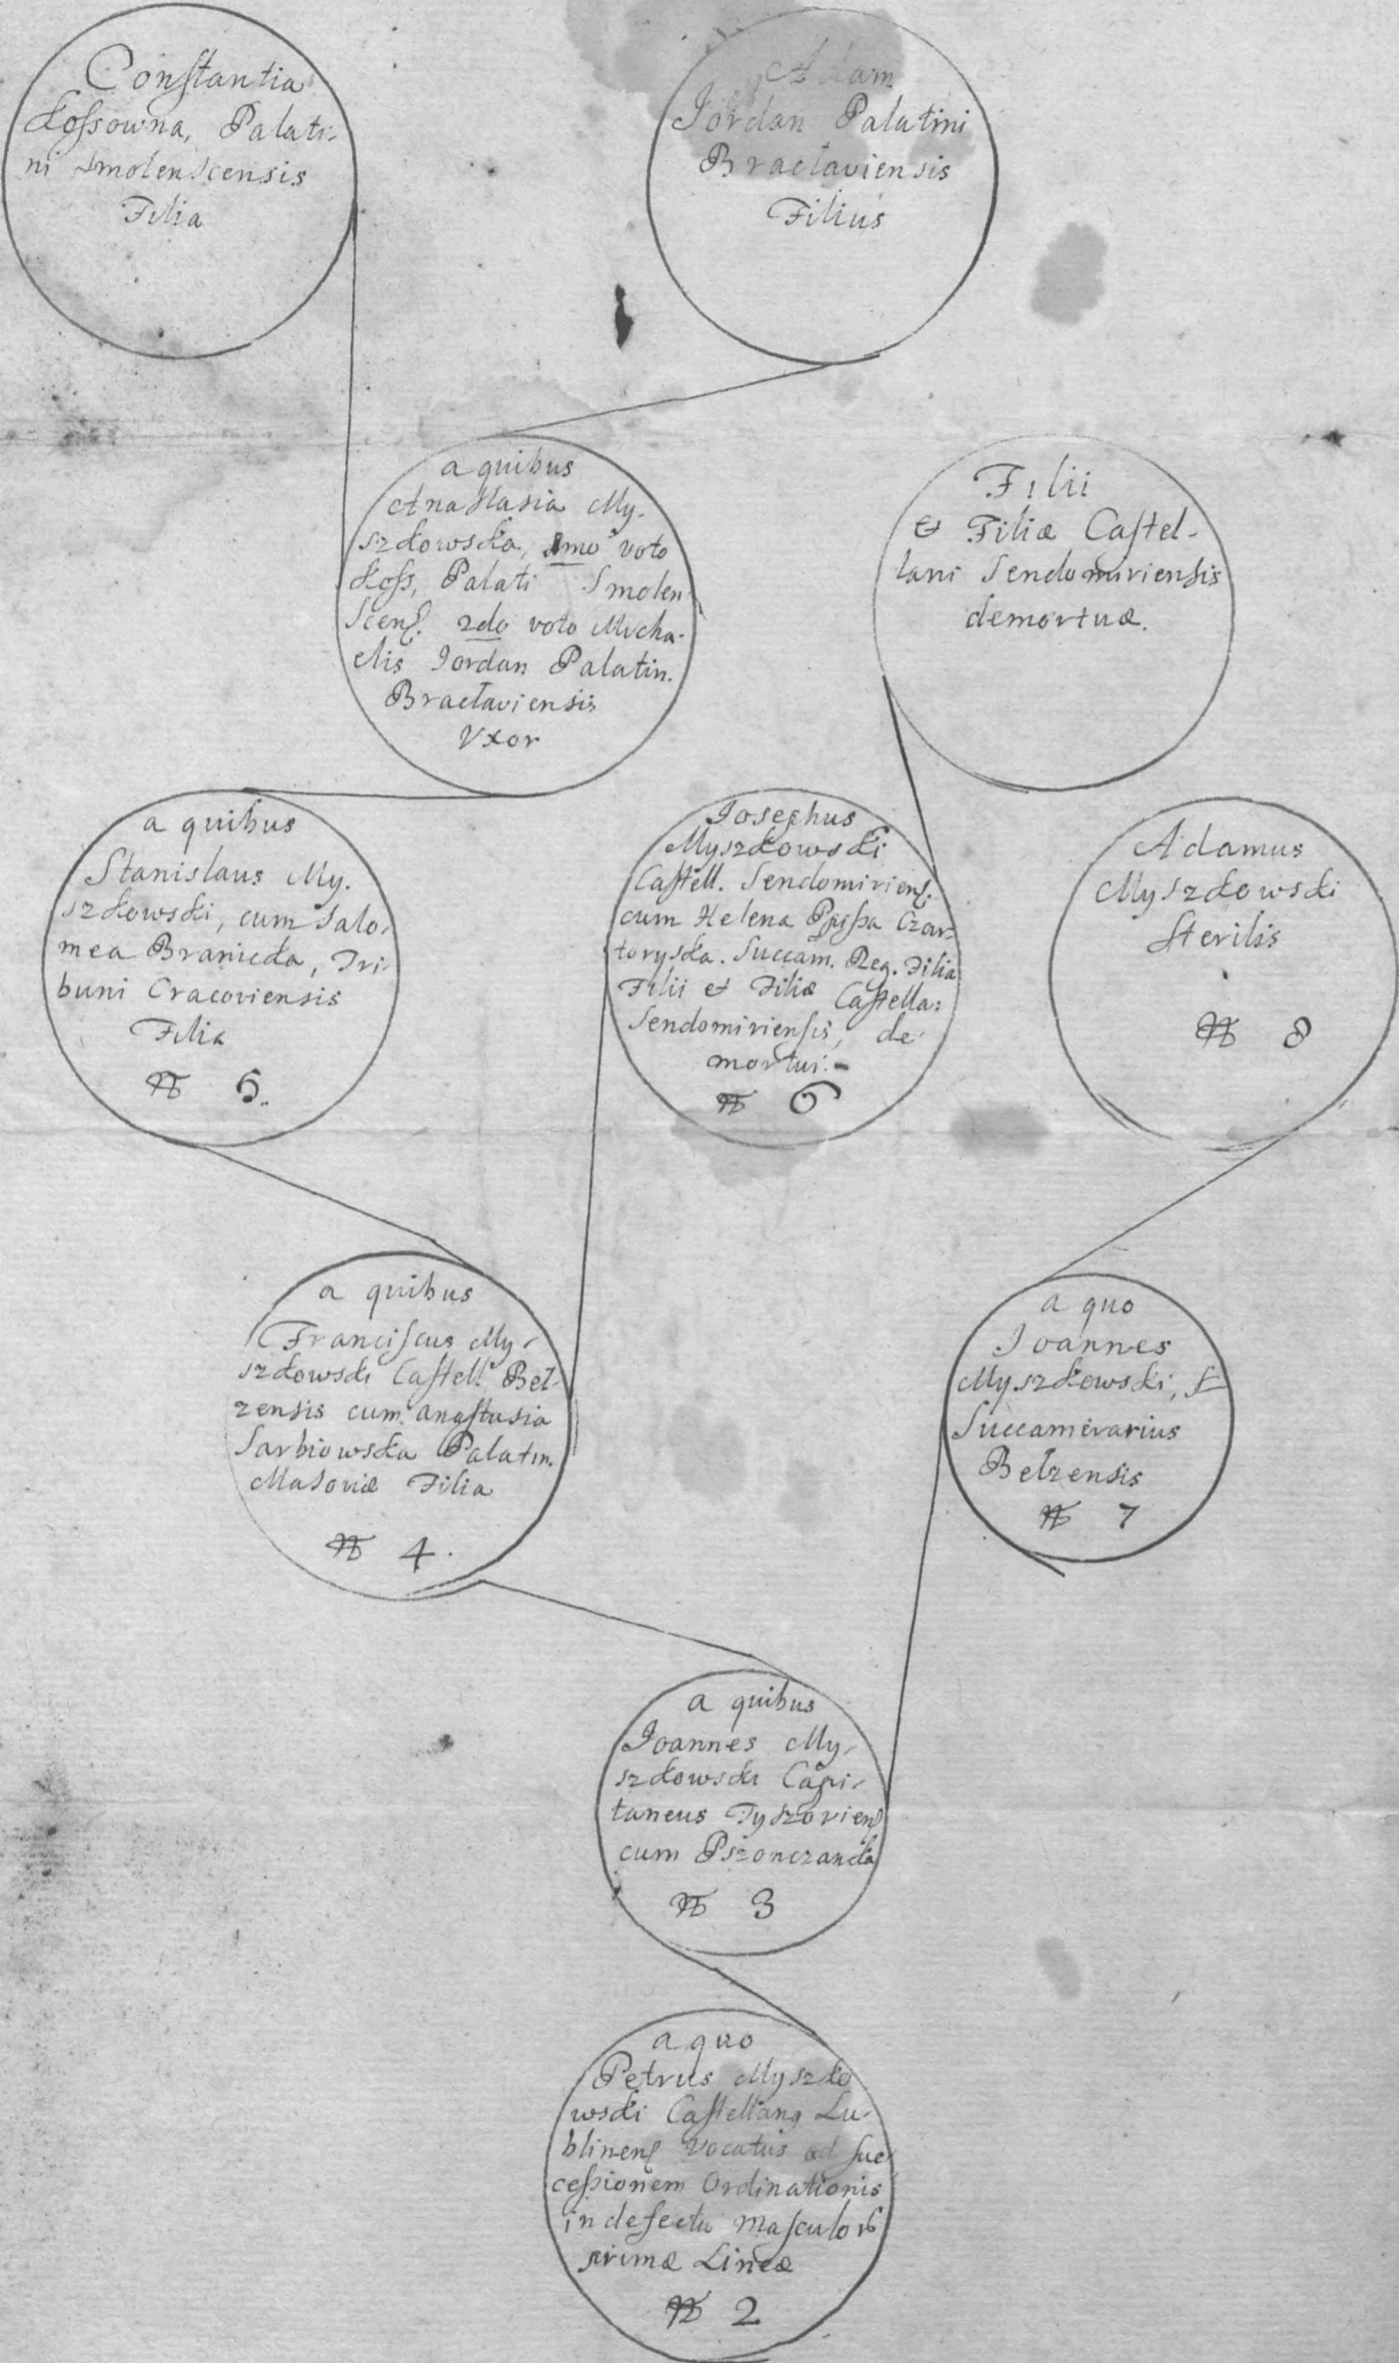 Constantia
Łossowna, Palati-
ni Smolenscensis
Filia
Adam
Jordan Palatini
Bractaviensis
Filius
a quibus
Anastasia My-
szkowska, 1mo voto
Łoss, Palati Smolen-
scens. 2do voto Micha-
elis Jordan Palatin.
Bractaviensis
Uxor
Filii
& Filiæ Castel-
lani Sendomiriensis
demortuæ.
a quibus
Stanislaus My-
szkowski, cum Salo-
mea Branicka, Tri-
buni Cracoviensis
Filia
N 5.
Josephus
Myszkowski
Castell. Sendomiriens.
cum Helena Ppissa Czar-
toryska. Succam. Reg. Filia
Filii et Filiæ Castella:
Sendomiriensis, de-
mortui:-
N 6
Adamus
Myszkowski
Sterilis
N 8
a quibus
Franciscus My-
szkowski Castell. Bel-
zensis cum Anastasia
Sarbiowska Palatin.
Masoviæ Filia
N 4.
a quo
Joannes
Myszkowski,
Succamerarius
Belzensis
N 7
a quibus
Joannes My-
szkowski Capi-
taneus Tyszoviens
cum Pszonczanka
N 3
a quo
Petrus Myszko
wski Castellanus Lu-
blinens vocatus ad suc-
cessionem Ordinationis
in defectu masculorum
primæ Lineæ
N 2